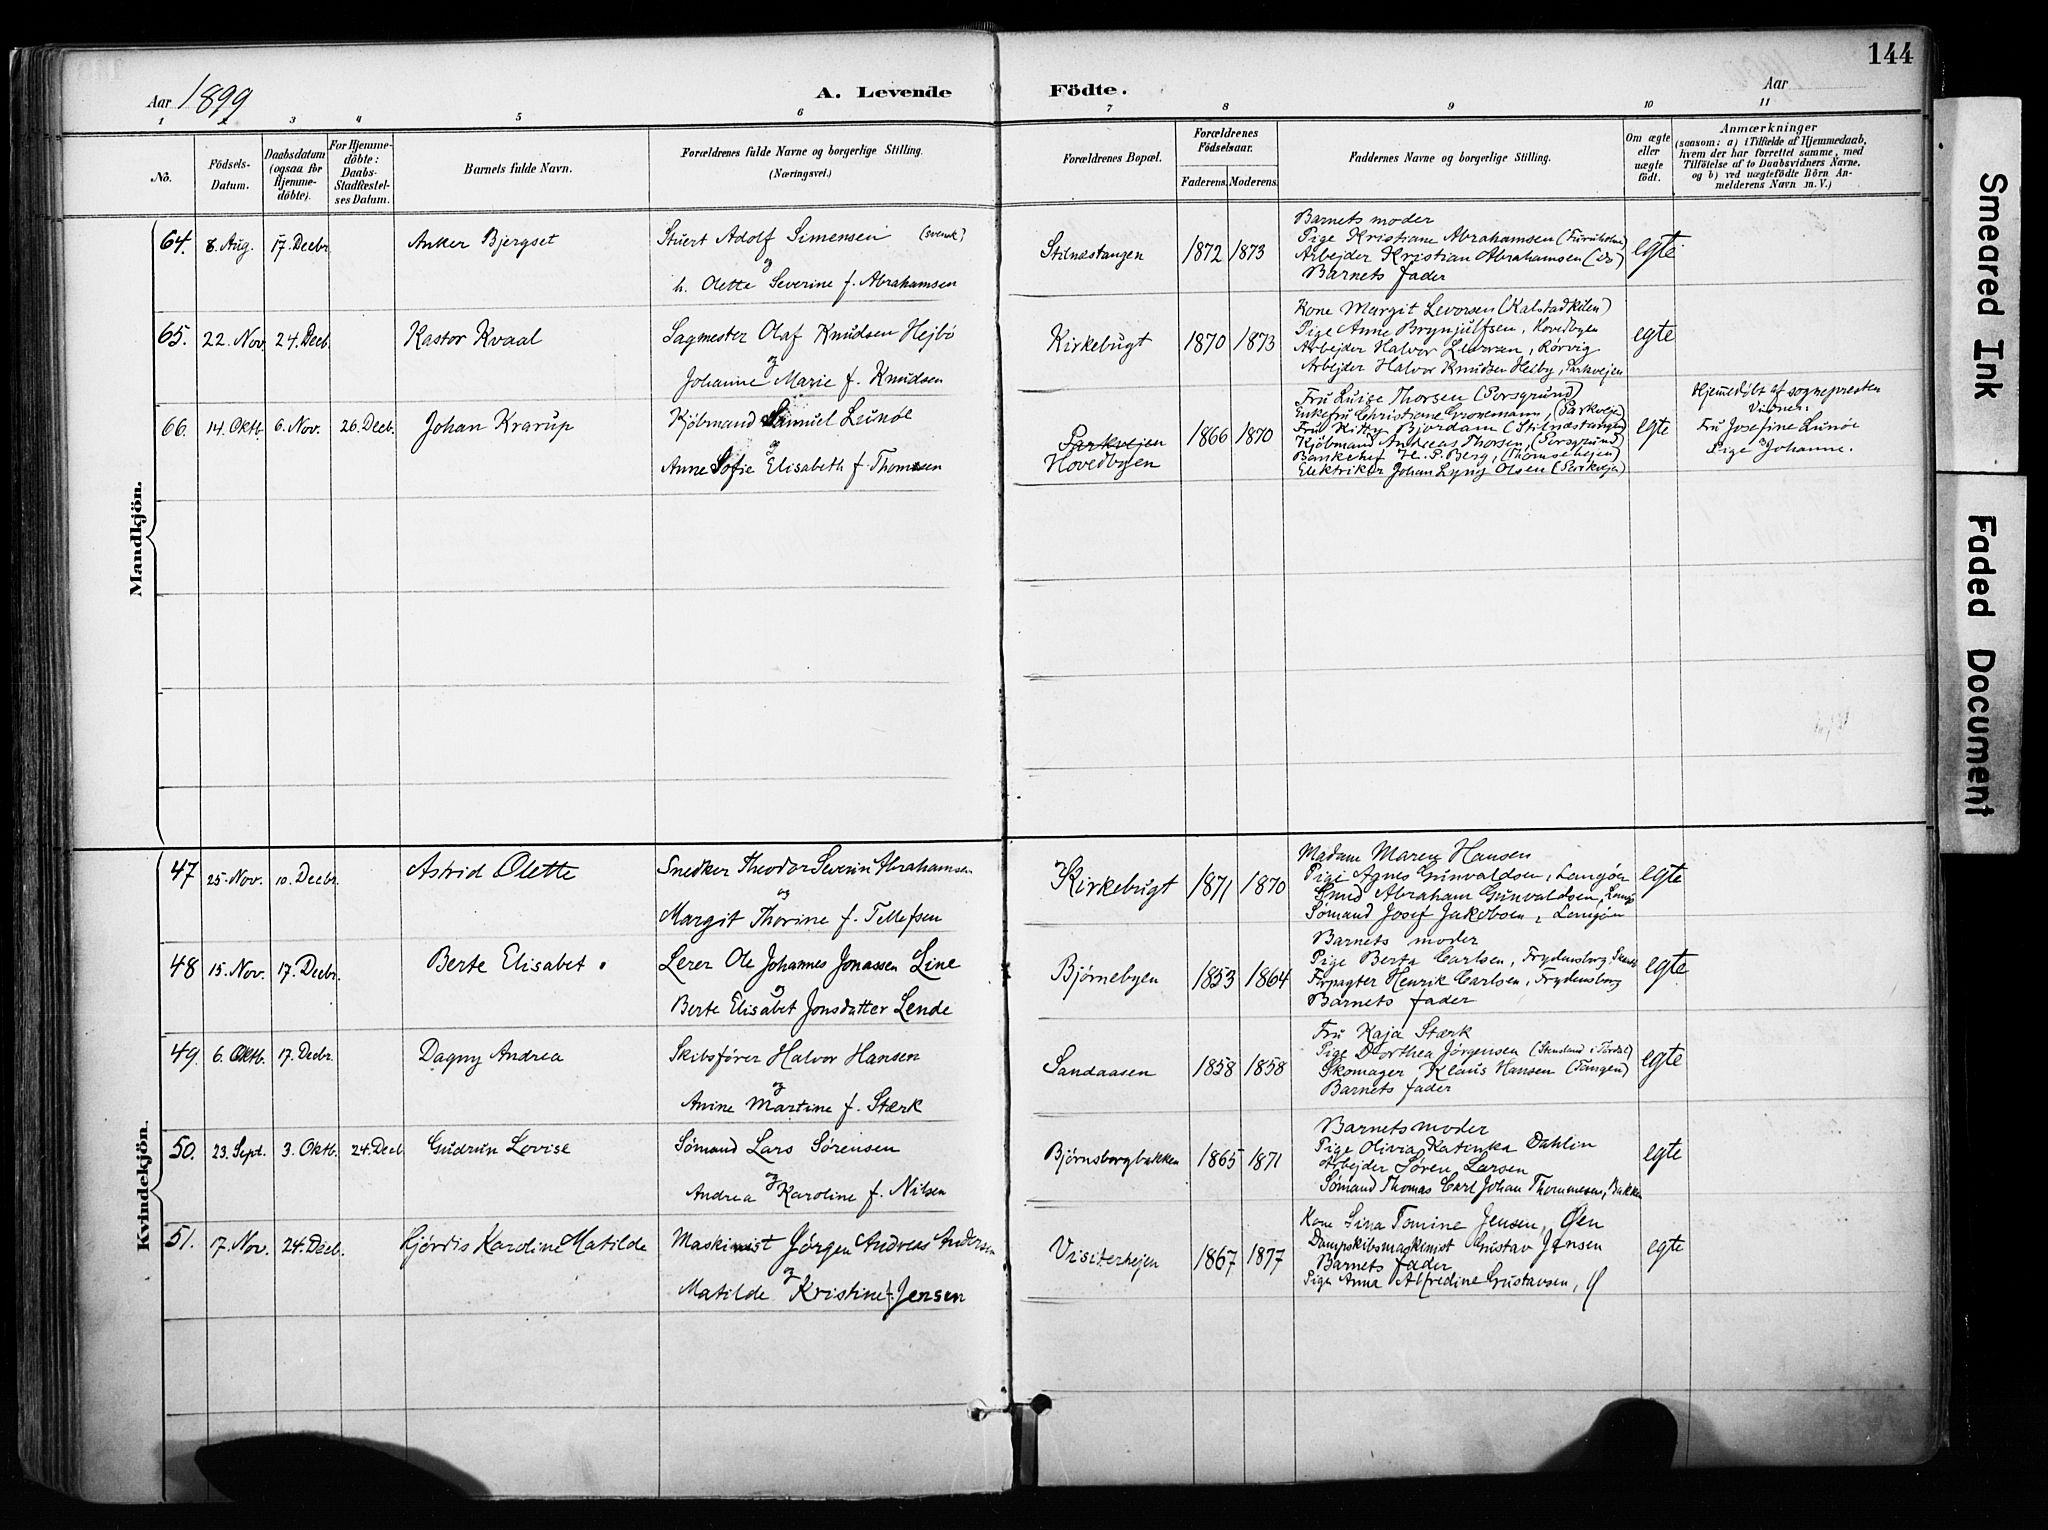 144
Aar 1899
A. Levende Födte.
Aar
1 2 3 4 5 6 7 8 9 10 11
No.
Födsels-Datum.
Daabsdatum (ogsaa for Hjemme-döbte).
For Hjemme-döbte: Daabs-Stadfestel-ses Datum.
Barnets fulde Navn.
Forældrenes fulde Navne og borgerlige Stilling.
(Næringsvei.)
Forældrenes Bopæl.
Forældrenes Födselsaar.
Faderens. Moderens.
Faddernes Navne og borgerlige Stilling.
Om ægte eller uægte födt.
Anmærkninger
(saasom: a) i Tilfælde af Hjemmedaab,
hvem der har forrettet samme, med
Tilföielse af to Daabsvidners Navne,
og b) ved uægtefödte Börn An-
melderens Navn m. V.)
Mandkjön.
64. 8. Aug. 17. Decbr. Anker Bjergset
Stuert Adolf Simensen (svensk)
og
h. Olette Severine f. Abrahamsen
Stilnæstangen 1872 1873
Barnets moder
Pige Kristiane Abrahamsen (Furuholm)
Arbejder Kristian Abrahamsen (do)
Barnets fader
egte
65. 22. Nov. 24. Decb. Kastor Kvaal
Sagmester Olaf Knudsen Hejbö
og
Johanne Marie f. Knudsen
Kirkebugt 1870 1873
Kone Margit Levorsen (Kalstadkilen)
Pige Anne Brynjulfsen, Hovedbyen
Arbejder Halvor Levorsen, Rörvig
Arbejder Halvor Knudsen Heiby, Parkvejen
egte
66. 14. Oktb. 6. Nov. 26. Decb. Johan Krarup
Kjöbmand Samuel Lunöe
og
Anne Sofie Elisabeth f. Thomsen
Parkvejen
Hovedbyen
1866 1870
Fru Luise Thorsen (Porsgrund)
Enkefru Christiane Gronemann, (Parkveje)
Fru Kitty Bjordam (Stilnæstangen)
Kjöbmand Andreas Thorsen, (Porsgrund)
Bankchef H. P. Berg, (Thomsehejen)
Elektriker Johan Lyng Olsen (Parkveja)
egte
Hjemmedöbt af sogneprest
Vidner:
Fru Josefine Lunöe
Pige Johanne.
Kvindekjön.
47 25. Nov. 10. Decbr. Astrid Olette
Snedker Theodor Severin Abrahamsen
og
Margit Thorine f. Tellefsen
Kirkebugt 1871 1870
Madam Maren Hansen
Pige Agnes Gunvaldsen, Langöen
Smed Abraham Gunvaldsen, Langö
Sømand Josef Jakobsen, Langøen
egte
48 15. Nov. 17. Decbr. Berte Elisabet.
Lerer Ole Johannes Jonassen Line
og
Berte Elisabet Jonsdatter Lende
Bjørnebyen 1853 1864
Barnets moder
Pige Berta Carlsen, Frydensborg,
Forpagter Henrik Carlsen, Frydensborg
Barnets fader
egte
49. 6. Oktb. 17. Decbr. Dagny Andrea
Skibsfører Halvor Hansen
og
Anine Martine f. Stærk
Sandaasen 1858 1858
Fru Kaja Stærk
Pige Dorthea Jørgensen (Standand i Tordal)
Skomager Klaus Hansen (Tangen)
Barnets fader
egte
50. 23. Sept. 3. Oktb. 24. Decb. Gudrun Lovise
Sømand Lars Sørensen
og
Andrea Karoline f. Nilsen
Bjørnsborgbakken 1865 1871
Barnets moder
Pige Olivia Katinka Dahlin
Arbejder Søren Larsen
Sømand Thomas Carl Johan Thommesen, Bakken
egte
51. 17. Nov. 24. Decb. Hjørdis Karoline Matilde
Maskinist Jørgen Andreas Andersen
og
Matilde Kristine f. Jensen
Visiterhejen 1867 1877
Kone Lina Tomine Jensen, Øen
Dampskibsmaskinist Gustav Jensen
Barnets fader
Pige Anna Alfredine Gustavsen,
egte
Smeared Ink
Faded Document